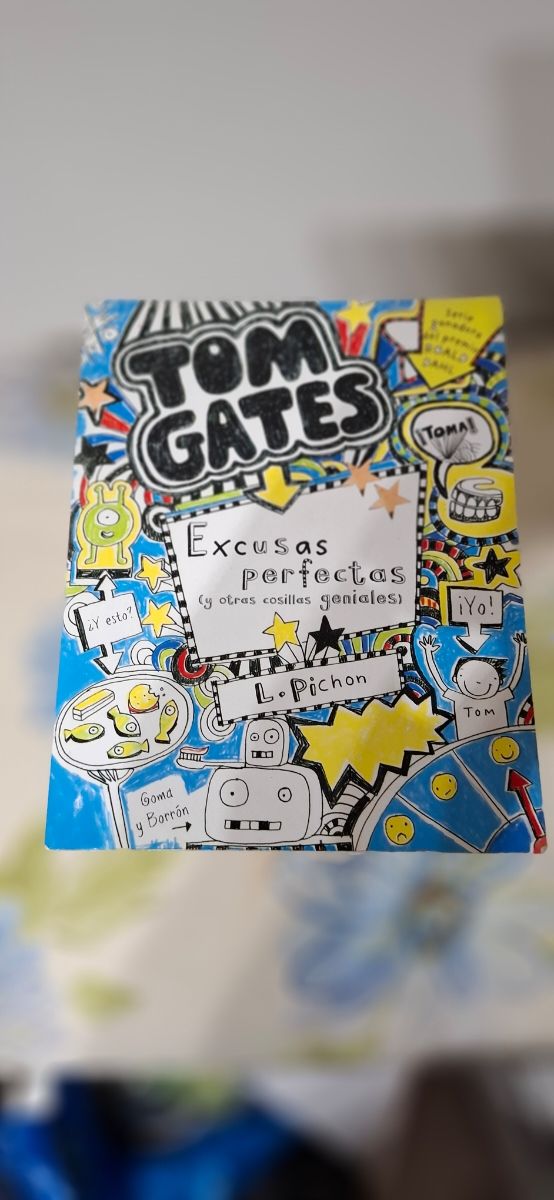 TOM
GATES
Serie
ganadora
del premio
ROALD
DAHL
¡TOMA!
Excusas
perfectas
(y otras cosillas geniales)
¿Y esto?
¡Yo!
L. Pichon
TOM
Goma
y Borrón